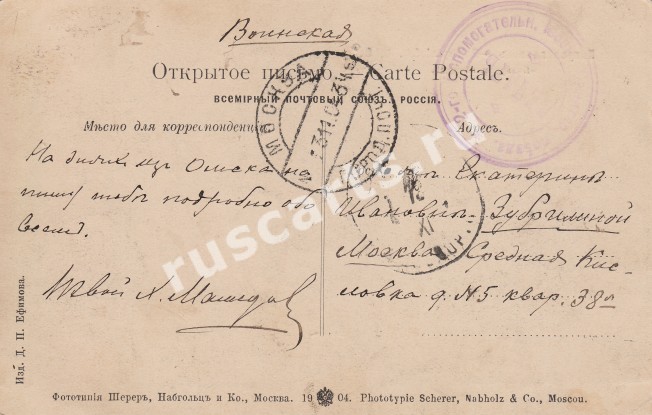 Воинская
Открытое письмо. — Carte Postale.
ВСЕМІРНЫЙ ПОЧТОВЫЙ СОЮЗЪ. РОССІЯ.
Мѣсто для корреспонденціи
Адресъ.
На дняхъ изъ Омска на
пишу тебѣ подробно обо
всемъ.
Твой
Екатеринѣ
Ивановнѣ Зубрилиной
Москва Средняя Кис
ловка д. N5 квар. 38
МОСКВА
ruscarts.ru
Изд. Д. П. Ефимова.
Фототипія Шереръ, Набгольцъ и Ко., Москва. 19 04. Phototypie Scherer, Nabholz & Co., Moscou.